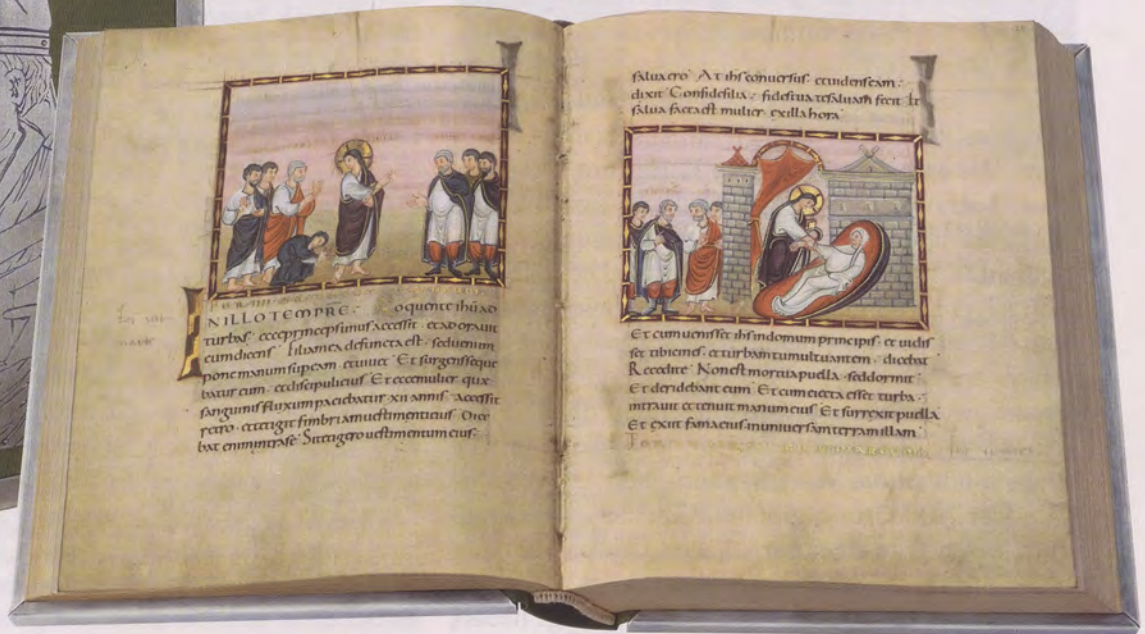 N ILLO TEMPRE. oquente ihu ad
turbas. ecce princeps unus accessit. et adorauit
eum dicens. Filia mea defuncta est. sed ueni
pone manum sup eam. et uiuet. Et surgens seque
batur eum. et discipuli eius. Et ecce mulier quæ
sanguinis fluxum paciebatur xii annis. accessit
retro. et tetigit fimbriam uestimenti eius. Dice
bat enim intra se. Si tetigero uestimentum eius.
salua ero. At ihs conuersus. et uidens eam.
dixit. Confide filia. fides tua te saluam fecit. Et
salua facta est mulier. ex illa hora.
Et cum uenisset ihs in domum principis. et uidis
set tibicines. et turbam tumultuantem. dicebat.
Recedite. Non est mortua puella. sed dormit.
Et deridebant eum. Et cum eiecta esset turba.
intrauit et tenuit manum eius. Et surrexit puella.
Et exiit fama eius. in uniuersam terram illam.